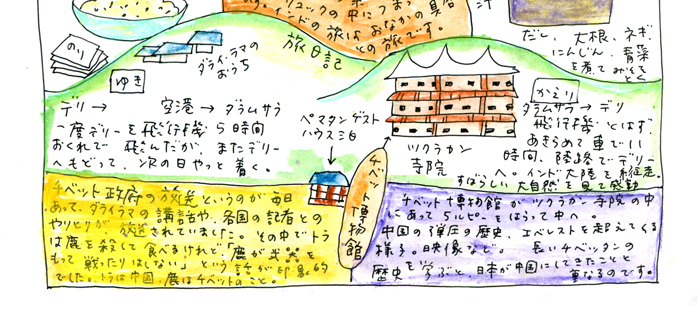 す。リュックの中につまっ
インドの旅はおなかの具合
との旅です。
汁
だし、大根、ネギ、
にんじん、青菜
を煮てみそを
とく
のり
旅日記
ダライ・ラマの
おうち
ゆき
デリー→ 空港→ダラムサラ
一度デリーを飛行機5時間
おくれで飛んだが、またデリー
へもどって、次の日やっと着く。
ペマタンゲスト
ハウス3泊
ツクラカン
寺院
かえり
ダラムサラ→デリー
飛行機とばず、
あきらめて車で11
時間、陸路でデリー
へ。インド大陸を縦走。
すばらしい大自然を見て感動
チベット博物館
チベット政府の放送というのが毎日
あって、ダライラマの講話や、各国の記者との
やりとりが放送されていました。その中でトラ
は鹿を殺して食べるけれど、「鹿が武器を
もって戦ったりはしない」という話が印象的
でした。トラは中国、鹿はチベットのこと。
チベット博物館がツクラカン寺院の中
にあって5ルピーをはらって中へ。
中国の弾圧の歴史、エベレストを越えてくる
様子。映像など。長いチベッタンの
歴史を学ぶと、日本が中国にしてきたことと
重なるのです。